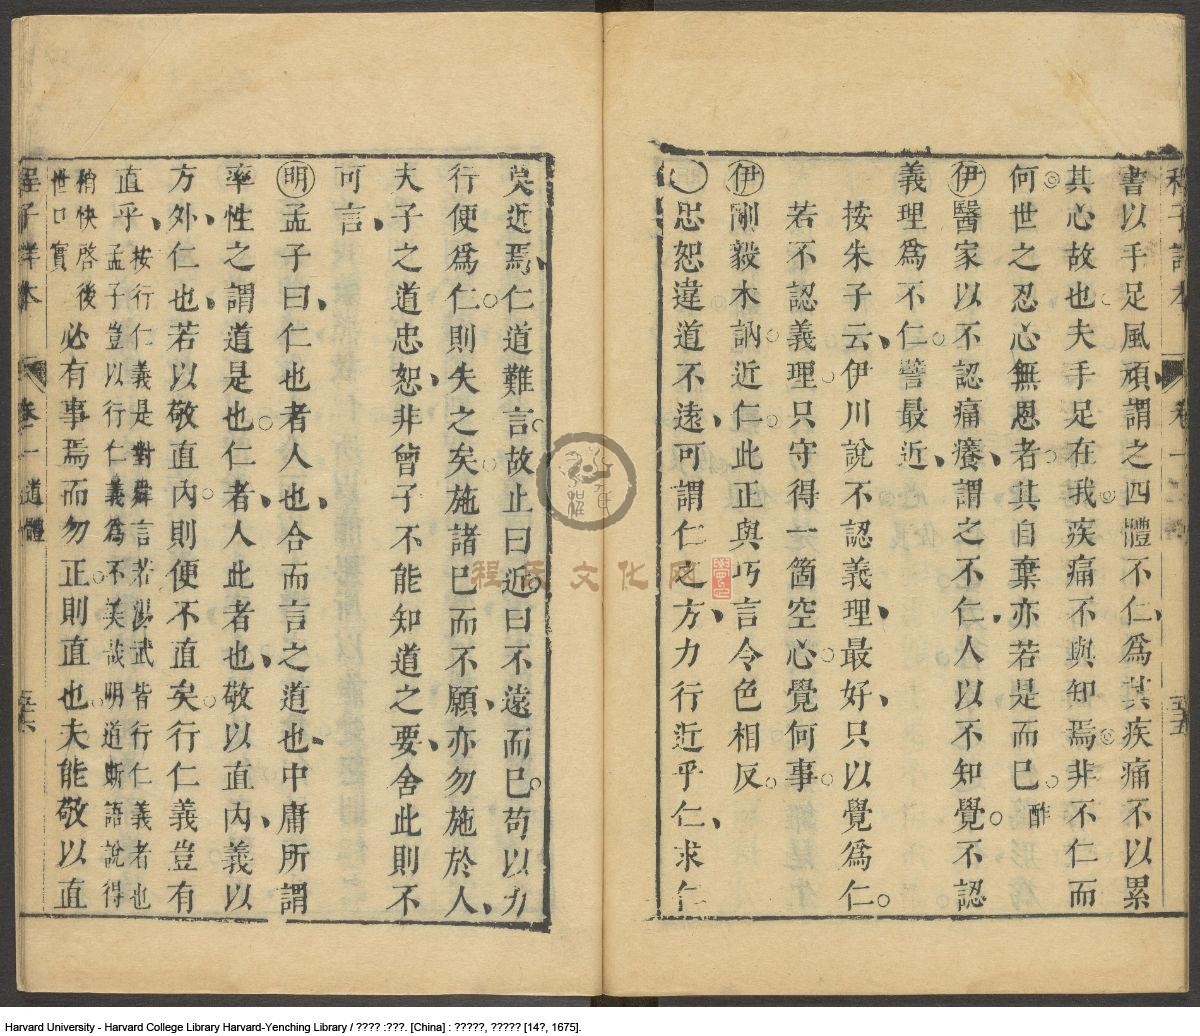 程子詳本 卷一 五五
書以手足風頑謂之四體不仁為其疾痛不以累
其心故也夫手足在我疾痛不與知焉非不仁而
何世之忍心無恩者其自棄亦若是而已酢
伊醫家以不認痛癢謂之不仁人以不知覺不認
義理為不仁譬最近
按朱子云伊川說不認義理最好只以覺為仁
若不認義理只守得一箇空心覺何事
伊剛毅木訥近仁此正與巧言令色相反
忠恕違道不遠可謂仁之方力行近乎仁求仁
莫近焉仁道難言故止曰近曰不遠而已苟以力
行便為仁則失之矣施諸己而不願亦勿施於人
夫子之道忠恕非曾子不能知道之要舍此則不
可言
明孟子曰仁也者人也合而言之道也中庸所謂
率性之謂道是也仁者人此者也敬以直內義以
方外仁也若以敬直內則便不直矣行仁義豈有
直乎按行仁義是對舜言若湯武皆行仁義者也
孟子豈以行仁義為不美哉明道斯語說得
稍快啓後
世口實必有事焉而勿正則直也夫能敬以直
程子詳本 卷一 道體 五六
程氏文化网
Harvard University - Harvard College Library Harvard-Yenching Library / ???? :???. [China] : ?????, ????? [14?, 1675].